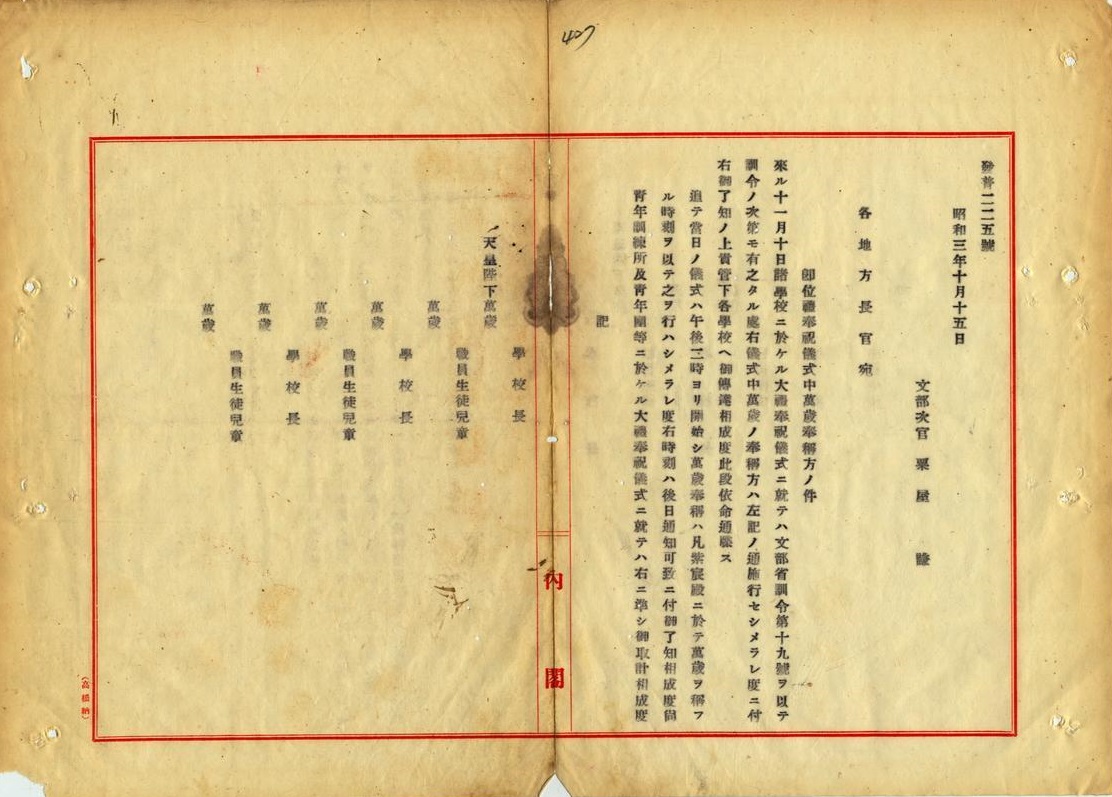 407
發普二二五號
昭和三年十月十五日
文部次官 粟屋 謙
各地方長官宛
卽位禮奉祝儀式中萬歲奉稱方ノ件
來ル十一月十日諸學校ニ於ケル大禮奉祝儀式ニ就テハ文部省訓令第十九號ヲ以テ
訓令ノ次第モ有之タル處右儀式中萬歲ノ奉稱方ハ左記ノ通施行セシメラレ度ニ付
右御了知ノ上貴管下各學校ヘ御傳達相成度此段依命通牒ス
追テ當日ノ儀式ハ午後二時ヨリ開始シ萬歲奉稱ハ凡紫宸殿ニ於テ萬歲ヲ稱フ
ル時刻ヲ以テ之ヲ行ハシメラレ度右時刻ハ後日通知可致ニ付御了知相成度尙
靑年訓練所及靑年團等ニ於ケル大禮奉祝儀式ニ就テハ右ニ準シ御取計相成度
記
學校長
天皇陛下萬歲
職員生徒兒童
萬歲
學校長
萬歲
職員生徒兒童
萬歲
學校長
萬歲
職員生徒兒童
萬歲
內閣